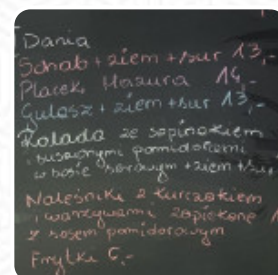 Dania
Schab + ziem + sur 13,-
Placek Mazura 14,-
Gulasz + ziem + sur 13,-
Rolada ze szpinakiem
i suszonymi pomidorkami
w sosie serowym + ziem + sur
Naleśniki z kurczakiem
i warzywami zapiekane
z sosem pomidorowym
Frytki 6,-